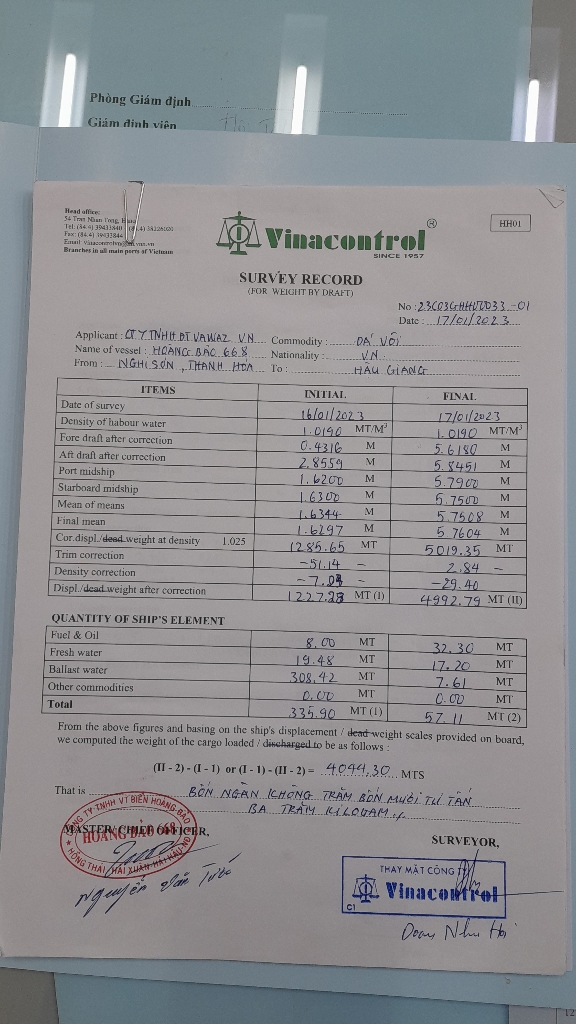 Phòng Giám định
Giám định viên
Head office:
54 Tran Nhan Tong,
Tel: (84.4) 39433840 38226020
Fax: (84.4) 39433844
Branches in all main ports of Vietnam
HH01
Vinacontrol ®
SINCE 1957
SURVEY RECORD
(FOR WEIGHT BY DRAFT)
No : 23G03GHHU0033-01
Date : 17/01/2023
Applicant : CT Y TNHH ĐT VAWAZ VN Commodity : ĐÁ VÔI
Name of vessel : HOÀNG BẢO 668 Nationality : VN
From : NGHI SƠN, THANH HÓA To : HẬU GIANG
ITEMS INITIAL FINAL
Date of survey 16/01/2023 17/01/2023
Density of habour water 1.0190 MT/M³ 1.0190 MT/M³
Fore draft after correction 0.4316 M 5.6180 M
Aft draft after correction 2.8559 M 5.8451 M
Port midship 1.6200 M 5.7900 M
Starboard midship 1.6300 M 5.7500 M
Mean of means 1.6344 M 5.7508 M
Final mean 1.6297 M 5.7604 M
Cor.displ./dead weight at density 1.025 1285.65 MT 5019.35 MT
Trim correction -51.14 - 2.84 -
Density correction - -29.40
Displ./dead weight after correction 1227.23 MT (I) 4992.79 MT (II)
QUANTITY OF SHIP'S ELEMENT
Fuel & Oil 8.00 MT 32.30 MT
Fresh water 19.48 MT 17.20 MT
Ballast water 308.42 MT 7.61 MT
Other commodities 0.00 MT 0.00 MT
Total 335.90 MT (1) 57.11 MT (2)
From the above figures and basing on the ship's displacement / dead weight scales provided on board,
we computed the weight of the cargo loaded / discharged to be as follows :
(II - 2) - (I - 1) or (I - 1) - (II - 2) = 4044.30 MTS
That is BỐN NGÀN KHÔNG TRĂM BỐN MƯƠI TƯ TẤN
BA TRĂM KILOGAM./
MASTER/ CHIEF OFFICER,
SURVEYOR,
CÔNG TY TNHH VT BIỂN HOÀNG BẢO
HOÀNG BẢO
HỒNG THÁI HẢI XUÂN HẢI HẬU NĐ
THAY MẶT CÔNG TY
Vinacontrol
C1
Nguyễn Văn
Doan Nhu
12